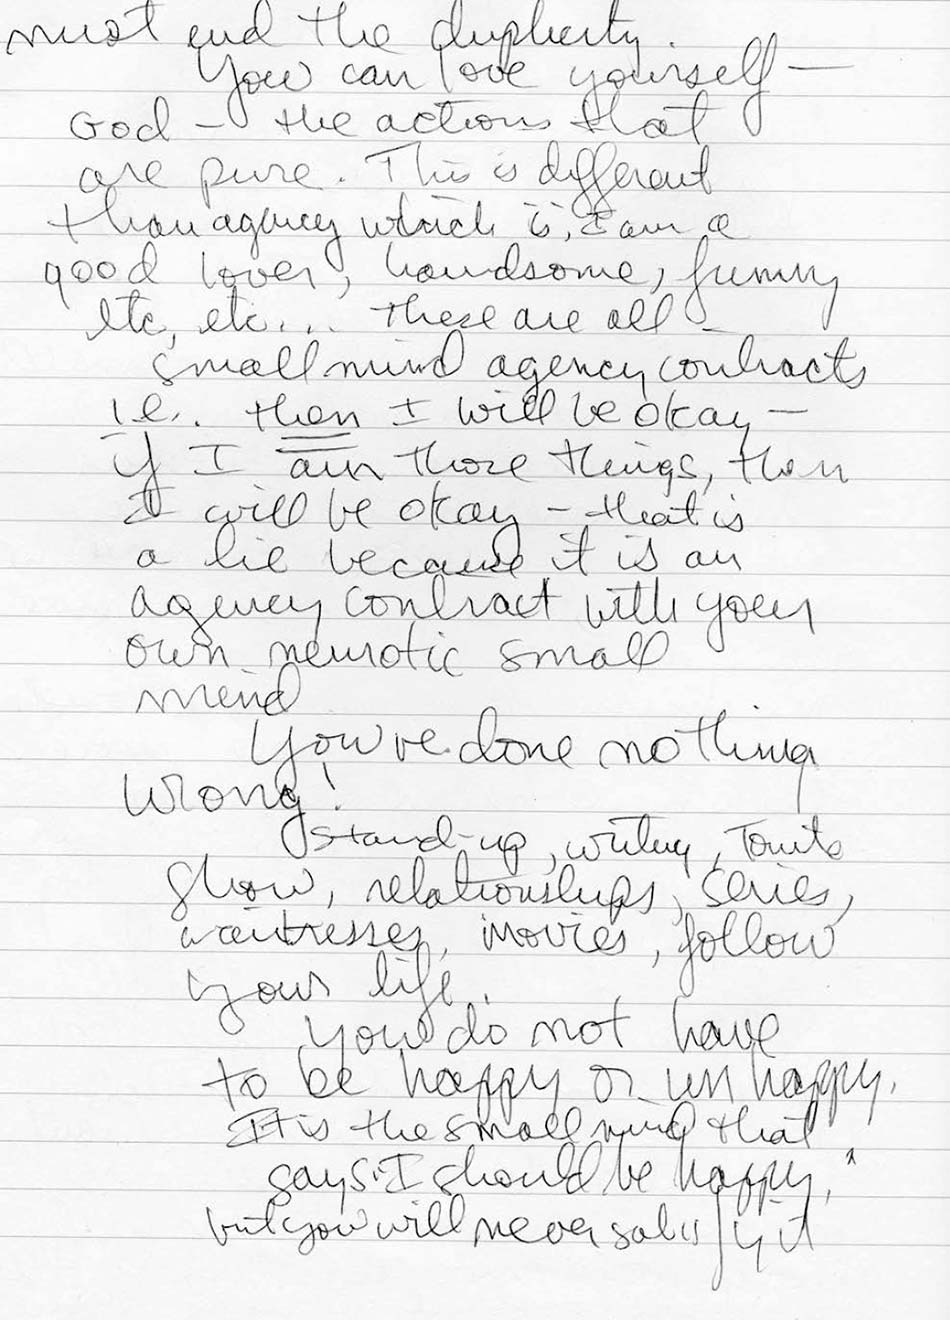 must end the duplicity.
You can love yourself —
God – the actions that
are pure. This is different
than agency which is, I am a
good lover, handsome, funny
etc, etc... these are all –
small mind agency contracts
i.e. then I will be okay –
if I am those things, then
I will be okay – that is
a lie because it is an
agency contract with your
own neurotic small
mind
You've done nothing
wrong!
Stand-up, writing, Tonite
Show, relationships, series,
waitresses, movies, follow
your life.
You do not have
to be happy or unhappy.
It is the small mind that
says "I should be happy,"
but you will never satisfy it